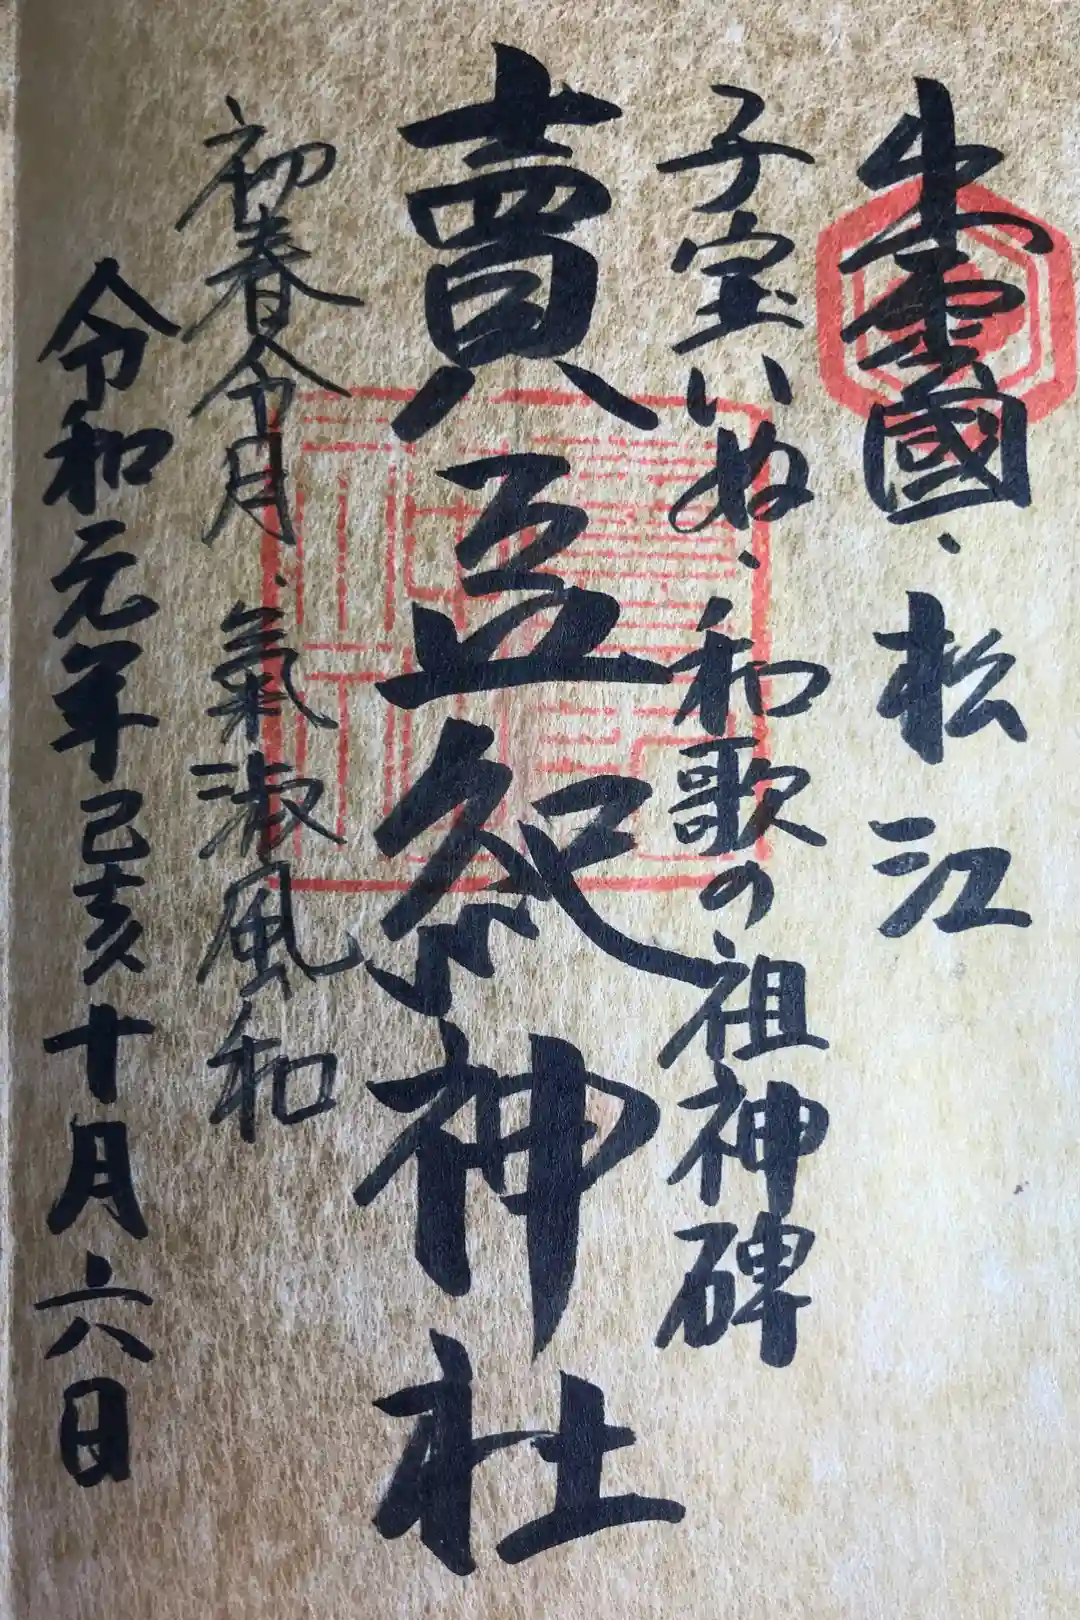 出雲國、松江
子宝いぬ、和歌の祖神碑
賣豆紀神社
初春令月、氣淑風和
令和元年己亥十月六日